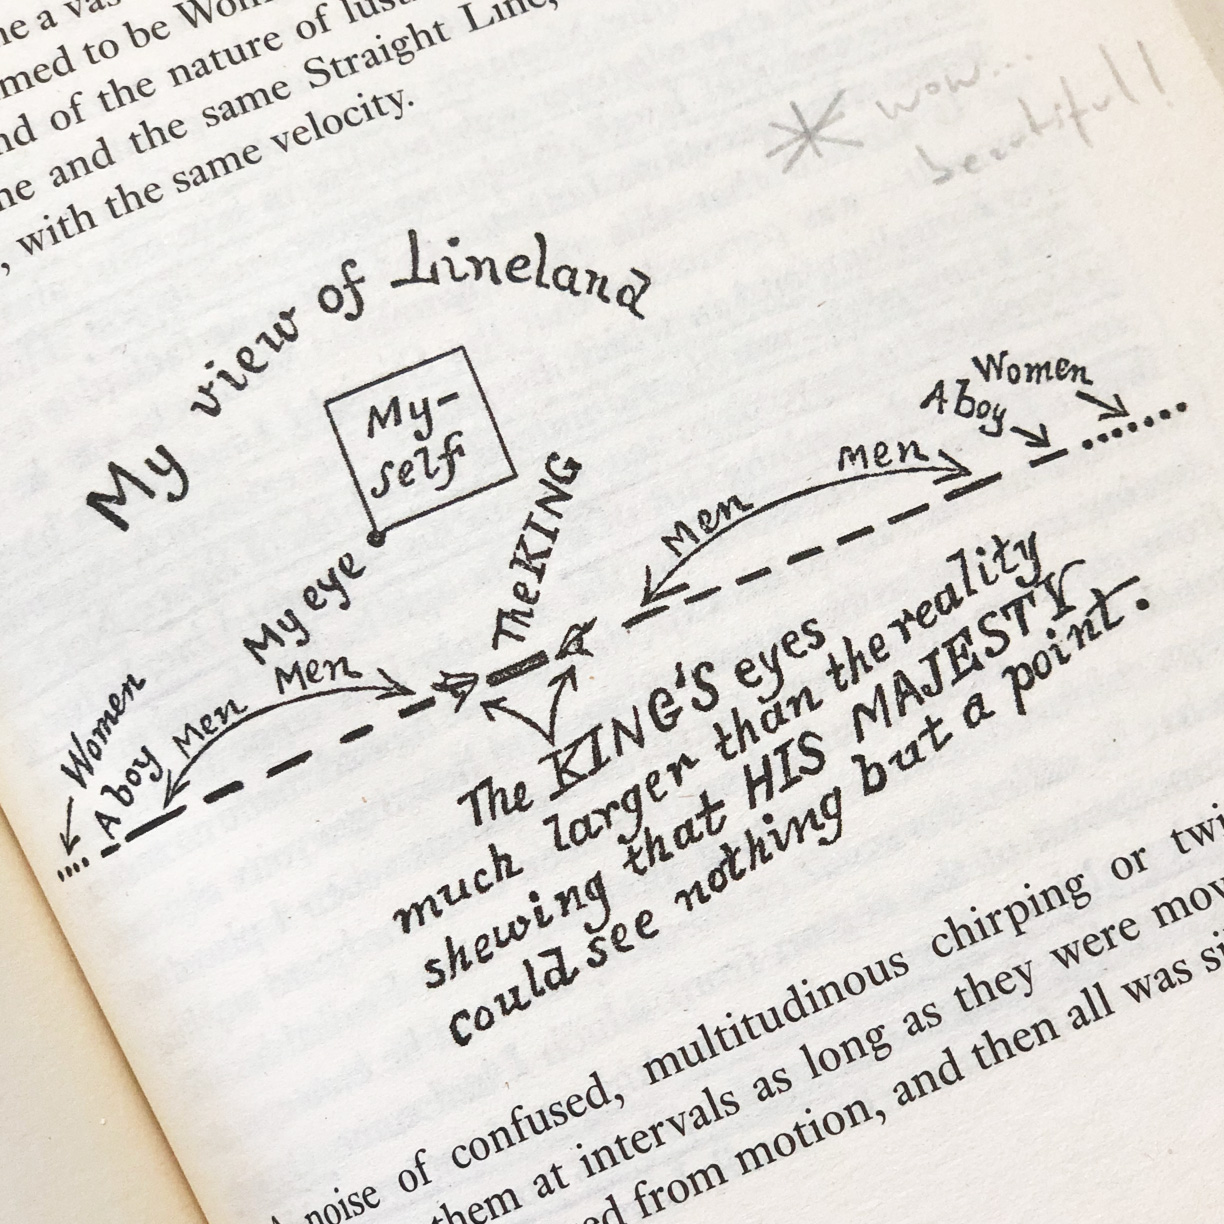 me a vas
med to be Wom
nd of the nature of lust
ne and the same Straight Line,
, with the same velocity.
wow...
beautiful!
My view of Lineland
My-
self
My eye
The KING
Women
A boy
Men
Men
Men
Men
A boy
Women
The KING'S eyes
much larger than the reality
shewing that HIS MAJESTY
could see nothing but a point.
A noise of confused, multitudinous chirping or twi
them at intervals as long as they were mov
ed from motion, and then all was si